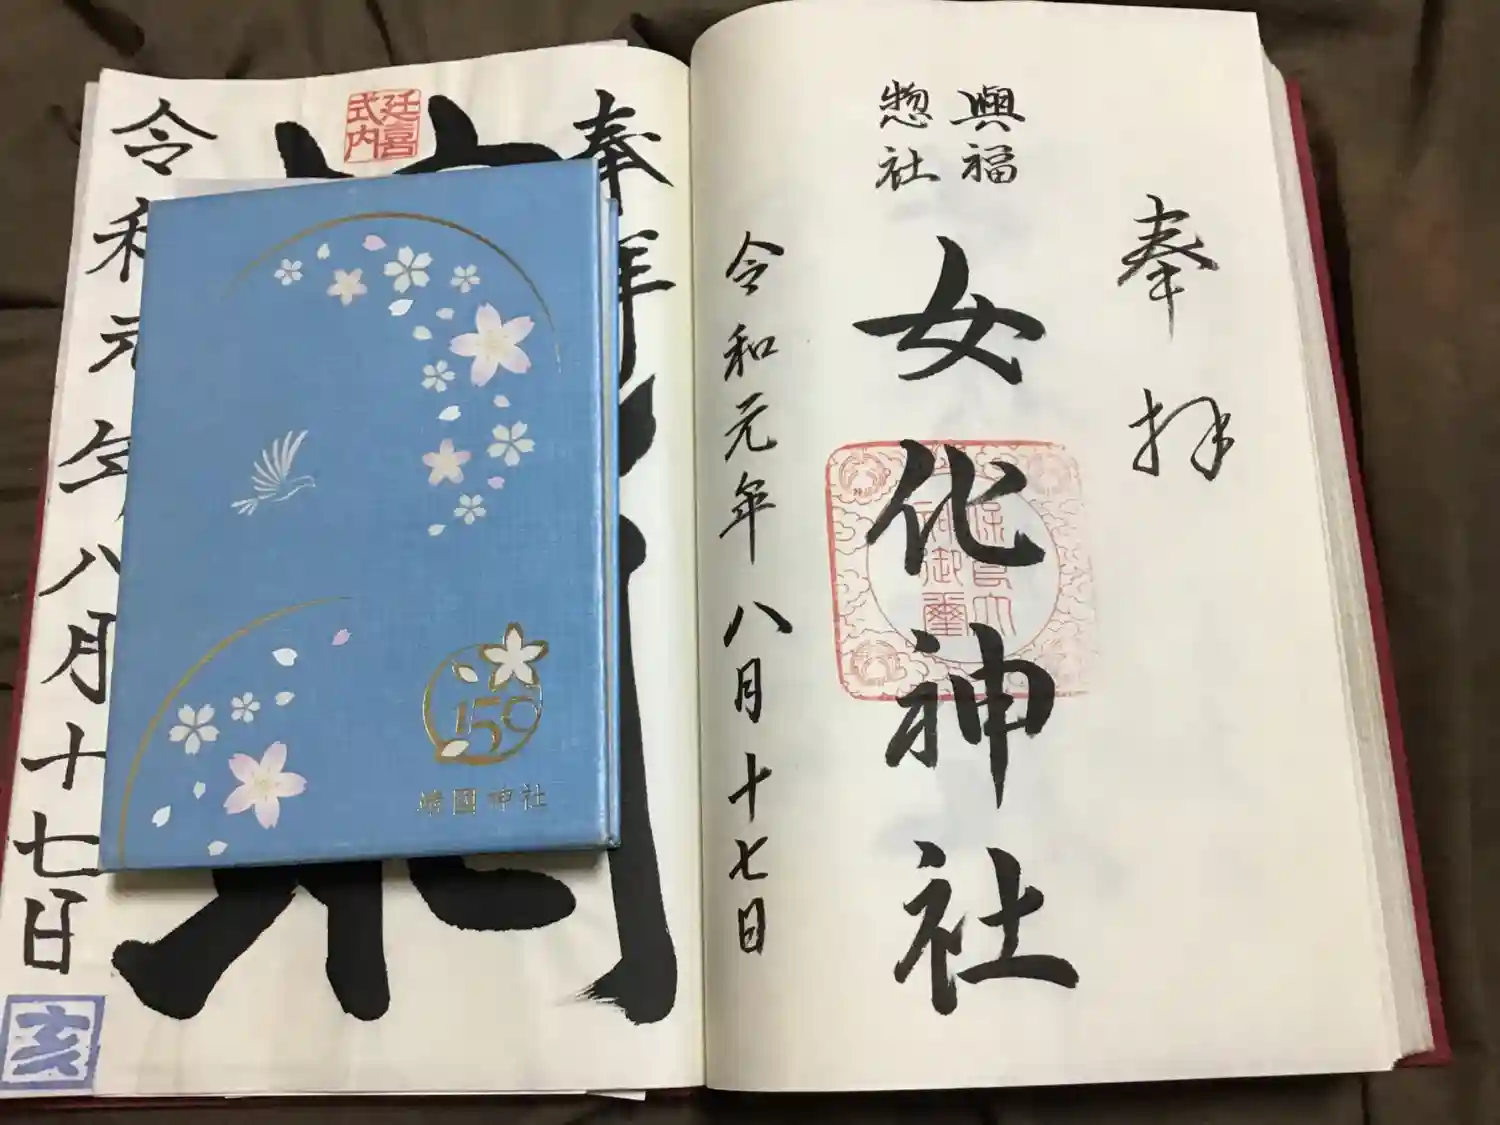 奉拝
興福
惣社
女化神社
令和元年八月十七日
奉拝
延喜
式内
令和元年八月十七日
亥
150
靖國神社